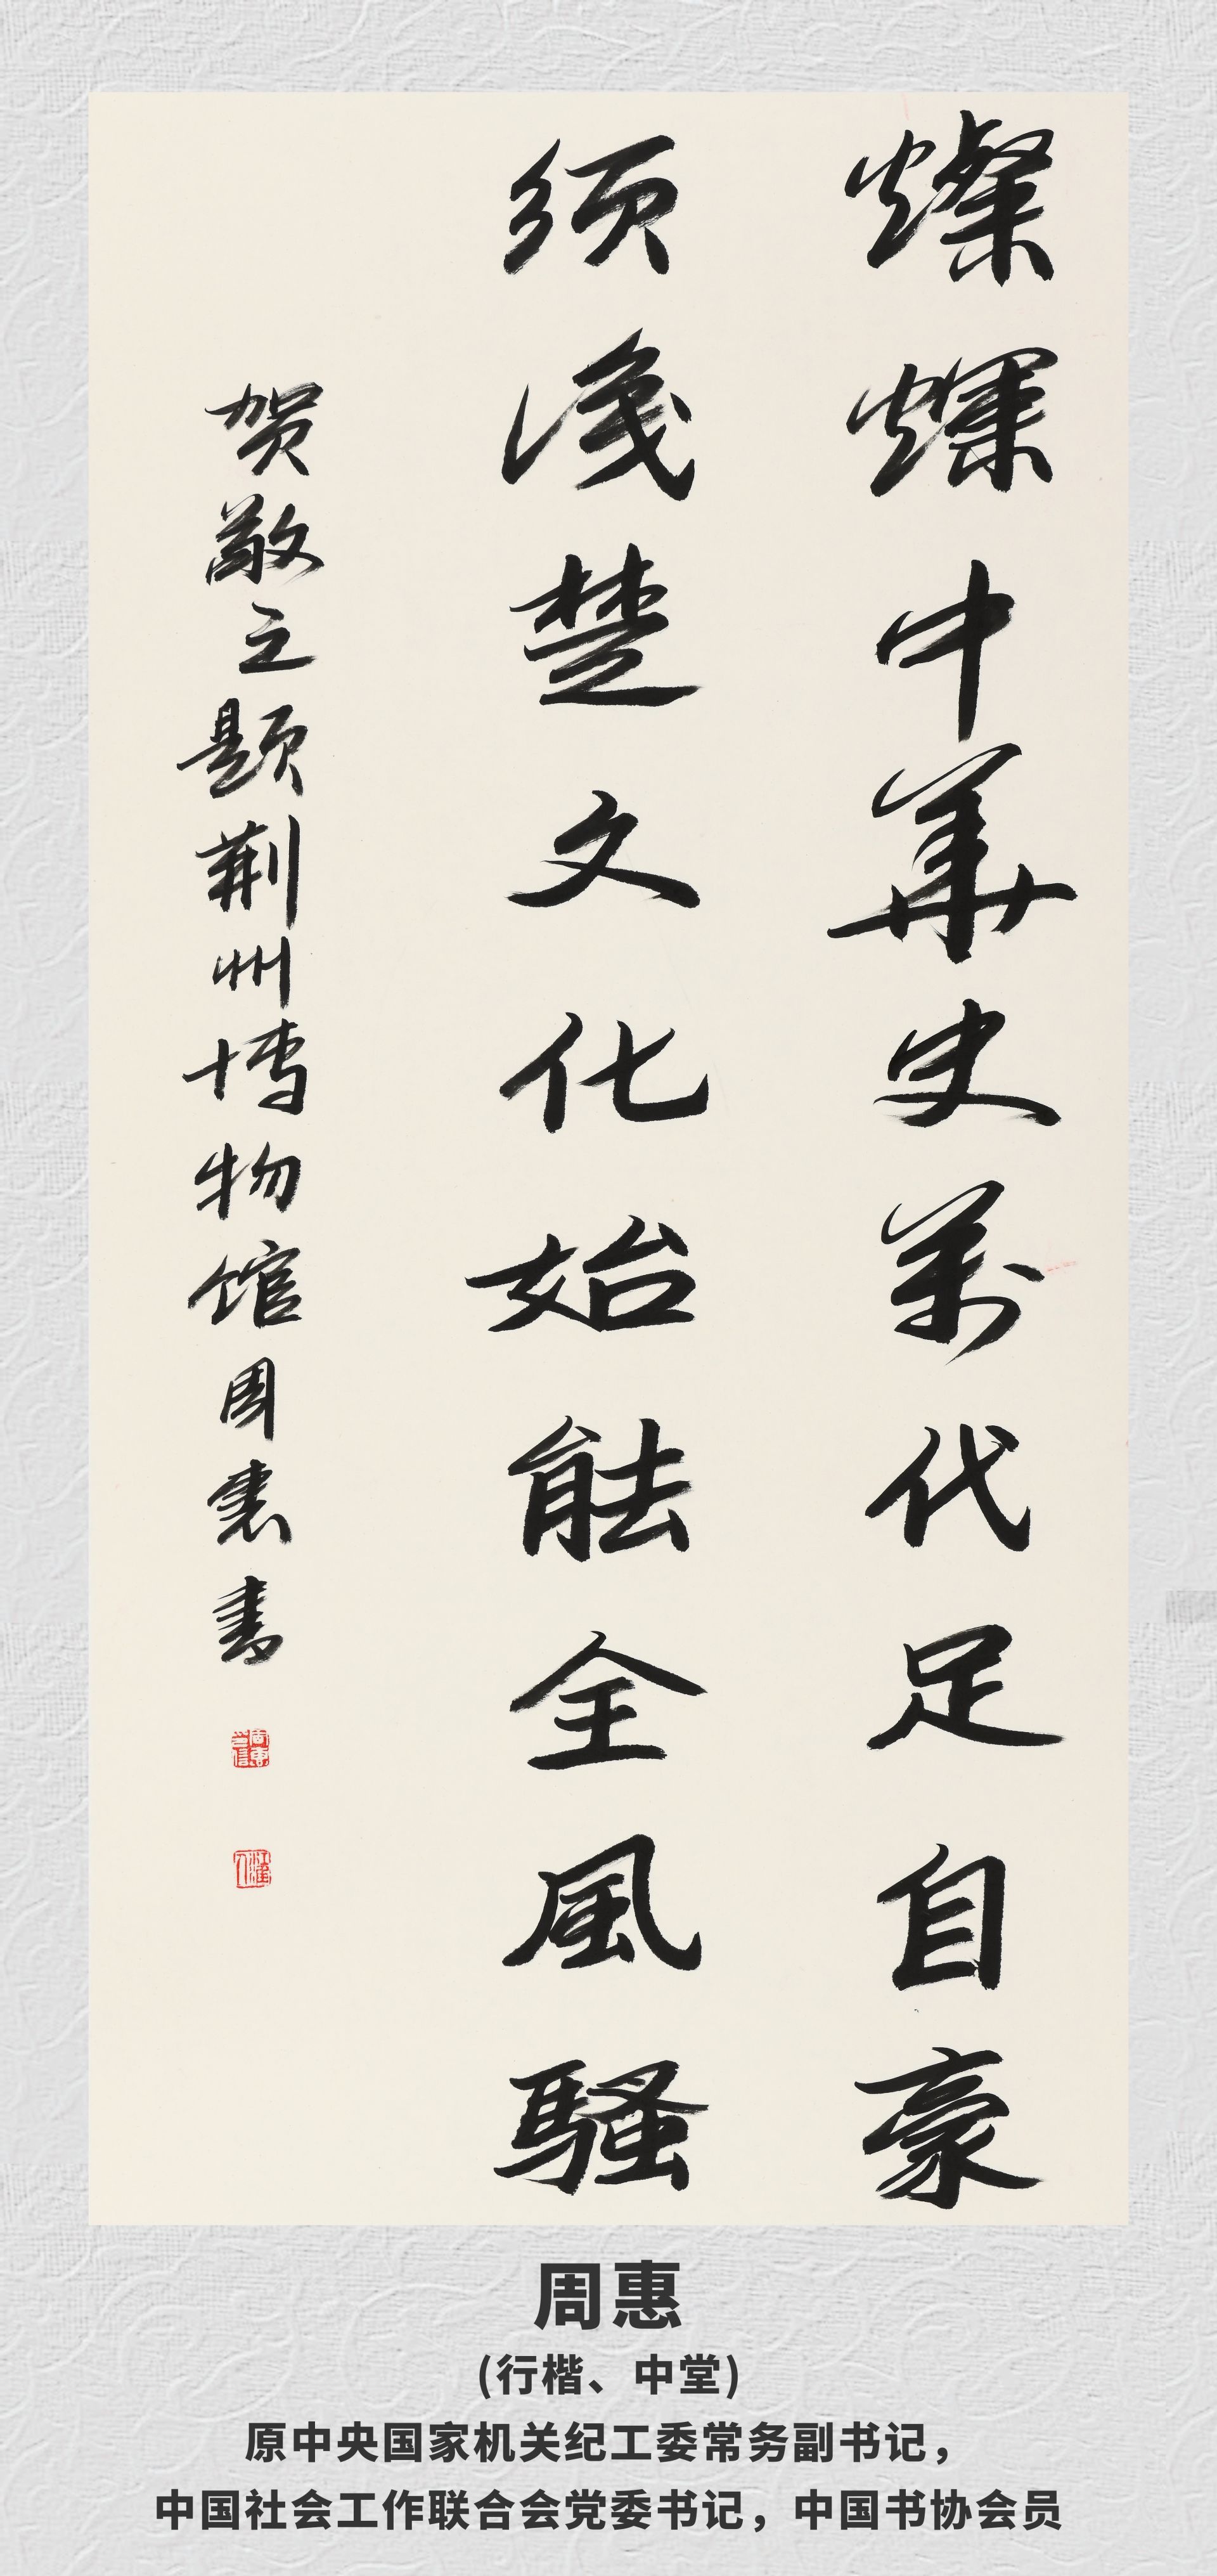 燦爛中華史萬代足自豪
须識楚文化始能全風騷
贺敬之题荆州博物馆周惠书
周惠
(行楷、中堂)
原中央国家机关纪工委常务副书记，
中国社会工作联合会党委书记，中国书协会员